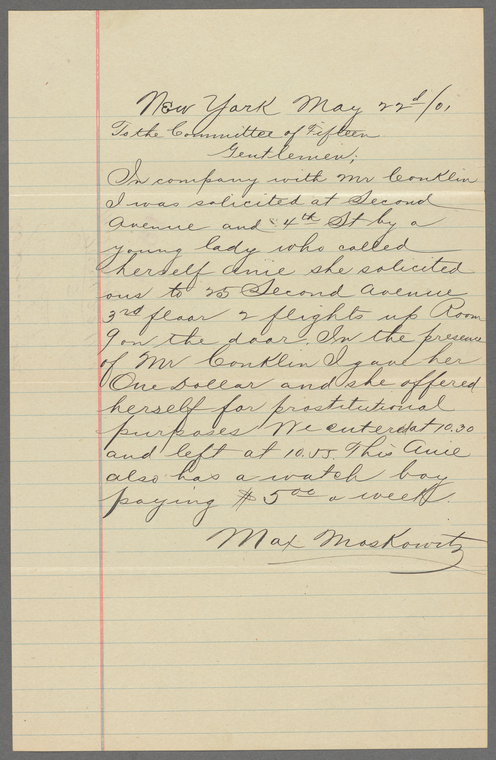 New York May 22d/01
To the Committee of Fifteen
Gentlemen;
In company with Mr Conklin
I was solicited at Second
Avenue and 4th St by a
young lady who called
herself Anie she solicited
ous to 25 Second Avenue
3rd floor 2 flights up Room
9 on the door. In the presence
of Mr Conklin I gave her
One Dollar and she offered
herself for prostitutional
purposes We entered at 10.30
and left at 10.55. This Anie
also has a watch boy
paying $5.00 a week.
Max Moskowitz